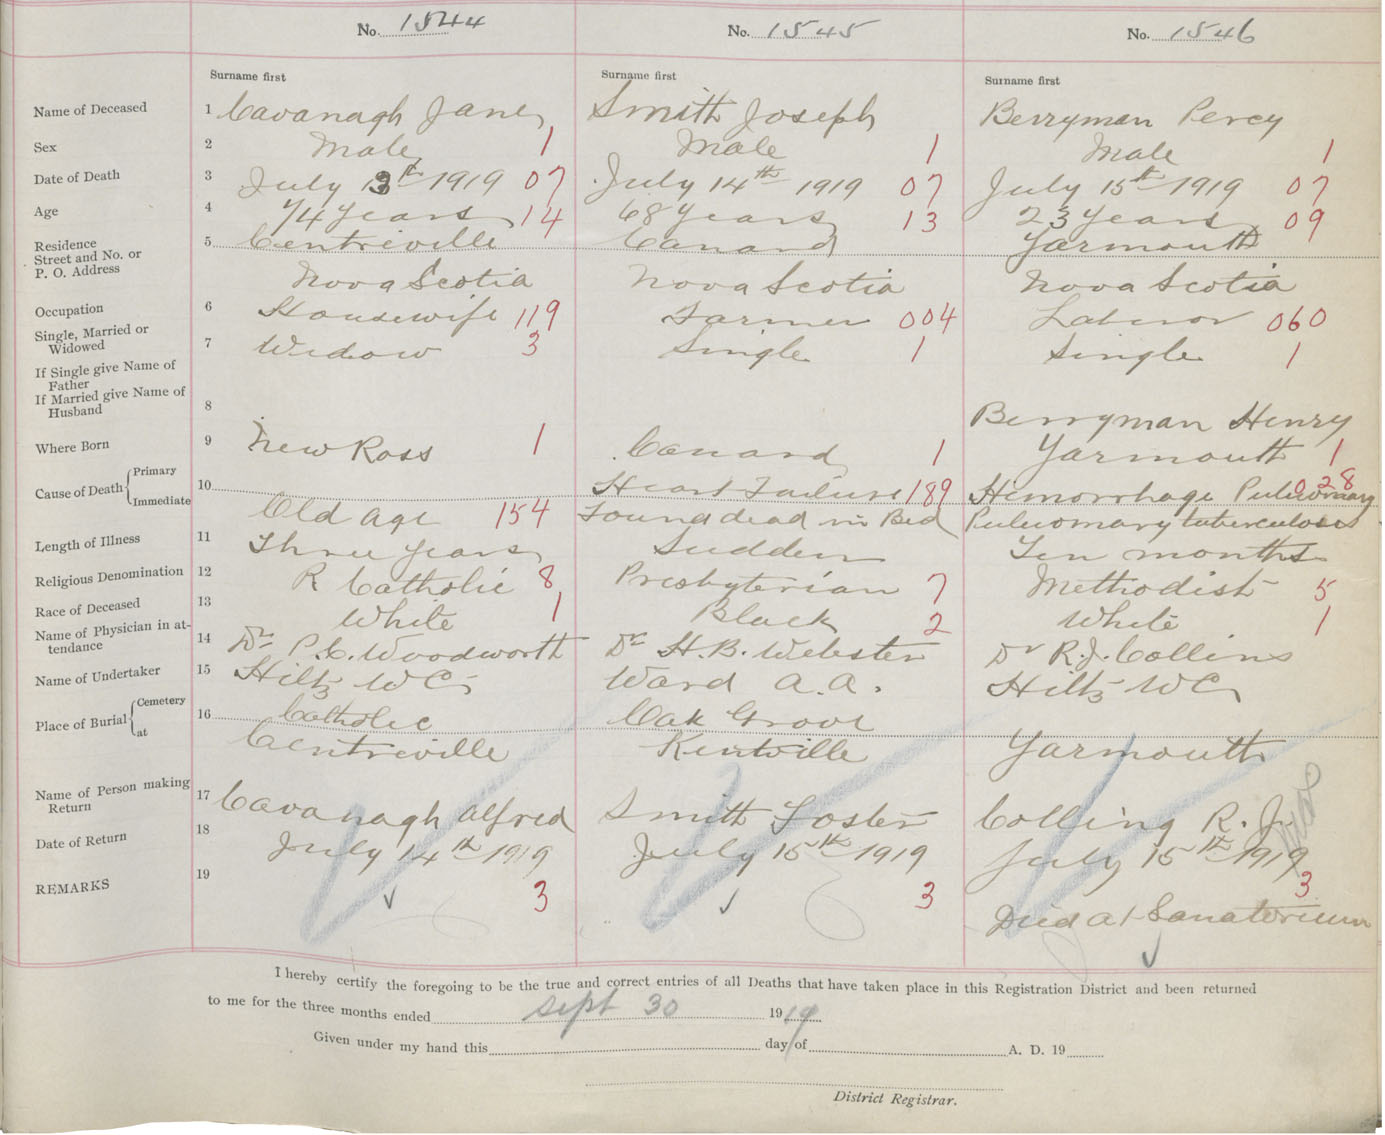 No. 1544 No. 1545 No. 1546
Surname first Surname first Surname first
Name of Deceased 1 Cavanagh Jane Smith Joseph Berryman Percy
Sex 2 Male 1 Male 1 Male 1
Date of Death 3 July 13th 1919 07 July 14th 1919 07 July 15th 1919 07
Age 4 74 Years 14 68 Years 13 23 Years 09
Residence
Street and No. or
P. O. Address
5 Centreville Canard Yarmouth
Nova Scotia Nova Scotia Nova Scotia
Occupation 6 Housewife 119 Farmer 004 Laberor 060
Single, Married or
Widowed
7 Widow 3 Single 1 Single 1
If Single give Name of
Father
If Married give Name of
Husband
8 Berryman Henry
Where Born 9 New Ross 1 Canard 1 Yarmouth 1
Cause of Death { Primary
Immediate
10 Heart Failure 189 Hemorrhage Pulmonary 028
Old age 154 Found dead in Bed Pulmonary tuberculosis
Length of Illness 11 Three Years Sudden Ten months
Religious Denomination 12 R Catholic 8 Presbyterian 7 Methodist 5
Race of Deceased 13 White 1 Black 2 White 1
Name of Physician in at-
tendance
14 Dr P. C. Woodworth Dr H. B. Webster Dr R. J. Collins
Name of Undertaker 15 Hiltz W C Ward A. A. Hiltz W C
Place of Burial { Cemetery
at
16 Catholic Oak Grove
Centreville Kentville Yarmouth
Name of Person making
Return
17 Cavanagh Alfred Smith Foster Colling R. J.
Date of Return 18 July 14th 1919 July 15th 1919 July 15th 1919
REMARKS 19 3 3 3
Died at Sanatorium
I hereby certify the foregoing to be the true and correct entries of all Deaths that have taken place in this Registration District and been returned
to me for the three months ended Sept 30 1919
Given under my hand this day of A. D. 19
District Registrar.